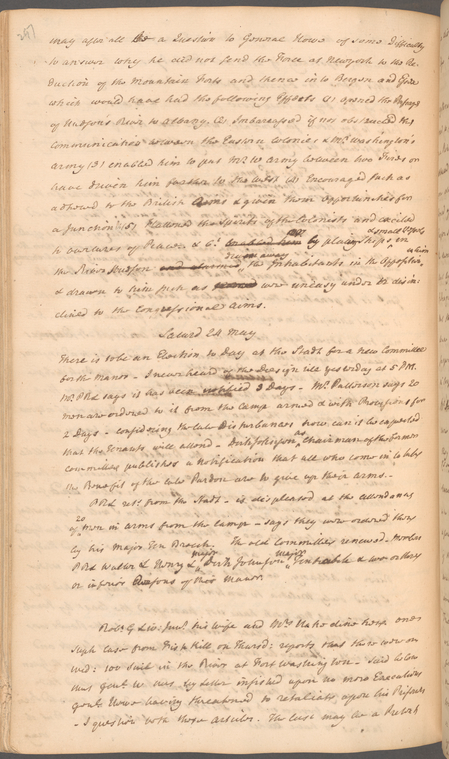 may after all be a Question to General Howe of some Difficulty
to answer why he did not send the Force at New york to the Re-
duction of the Mountain Forts and thence into Bergen and Essex
which would have had the following Effects (1) opened the Passage
of Hudson's River to Albany. (2) Imbarrassed if not obstructed the
Communication between the Eastern Colonies & Mr. Washington's
army (3) enabled him to put Mr. W. army between two Fires or
have driven him farther to the West (4) Encouraged such as
adhered to the British Arms & given them opportunities for
a Junction (5) Flattened the Spirits of the Colonists and excited
to overtures of Peace & 6.ly by placing Ships & small Vessels in
the River Hudson the Inhabitants in the Opposition
& drawn to him such as were uneasy under & disin-
clined to the Congressional Aims.
Saturd 24 May
There is to be an Election to Day at the Stadt for a new Committee
for the Manor - I never heard of the Design till yesterday at 5 P.M.
Mr PRL says it has been 3 Days - Mr Patterson says 20
men are ordered to it from the Camp armed & with Provisions for
2 Days - considering the late Disturbances how can it be expected
that the Tenants will attend - Dirk Johnson as Chairman of the former
committee publishes a notification that all who come in to take
the Benefit of the late Pardon are to give up their arms -
PRL retd. from the Stadt - is displeased at the attendance
of 20 men in arms from the Camp - says they were ordered there
by his Major Ten Broeck. The old Committee renewed -
PRL Walter L Henry L major Dirk Johnson major & two others
or inferior Persons of their Manor
Robt. G Liv: Junr. his wife and Mrs dine here one
Suph came from Fish Kill on Thursd: reports that there were on
Wed: 100 Sail in the River at Fort Washington - Said
that Govr. by Letter insisted upon no more Executions
Genl. Howe having threatened to retaliate upon his Prisoners
- I question both those articles. The last may be a Pretext